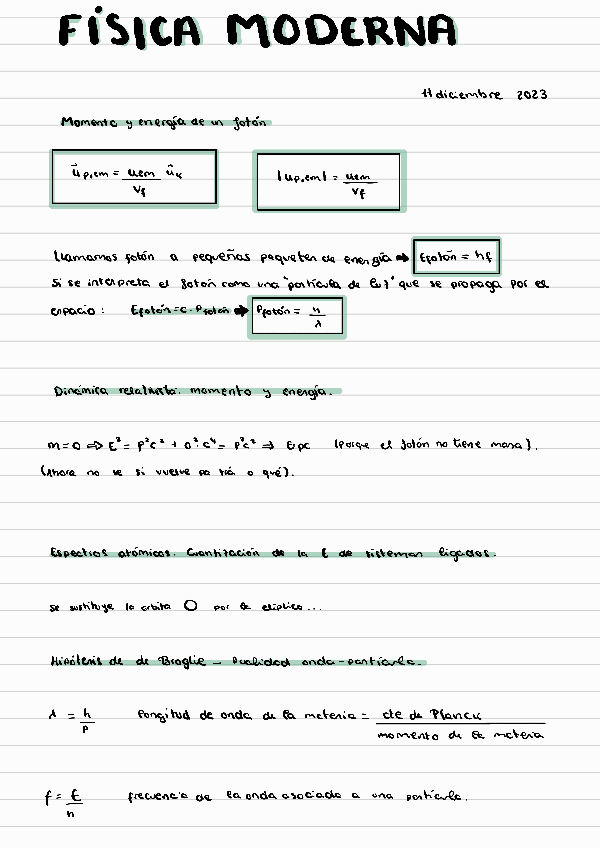 FÍSICA MODERNA
11 diciembre 2023
Momento y energía de un fotón
u⃗p,em = uem/vf ûk
|up,em| = uem/vf
llamamos fotón a pequeños paquetes de energía ➡ Efotón = hf
Si se interpreta el fotón como una "partícula de luz" que se propaga por el
espacio: Efotón = c · Pfotón ➡ Pfotón = h/λ
Dinámica relativista: momento y energía.
m=0 ⇒ E² = p²c² + 0²·c⁴ = p²c² ⇒ E=pc (Porque el fotón no tiene masa).
(Ahora no se si vuelve pa trá o qué).
Espectros atómicos. Cuantización de la E de sistemas ligados.
se sustituye la orbita O por la elíptica...
Hipótesis de de Broglie - Dualidad onda-partícula.
λ = h/p longitud de onda de la materia = cte de Planck / momento de la materia
f = E/h frecuencia de la onda asociada a una partícula.